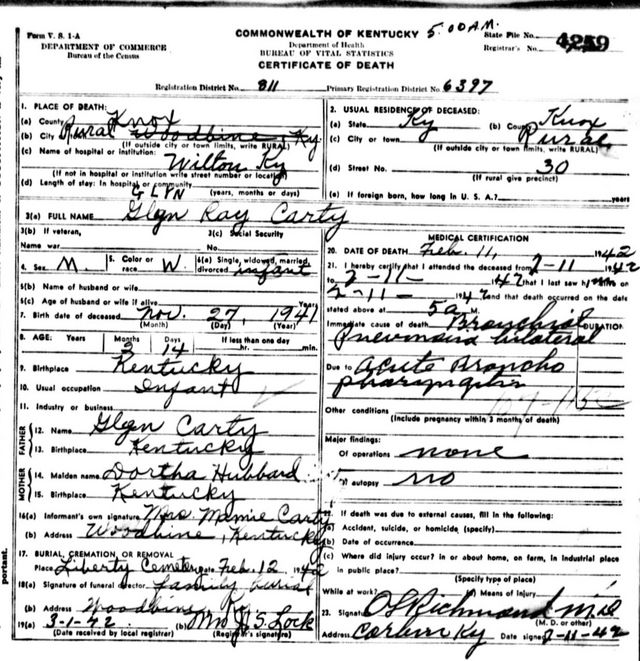 Form V. S. 1-A
DEPARTMENT OF COMMERCE
Bureau of the Census
COMMONWEALTH OF KENTUCKY 5.00 A.M.
Department of Health
BUREAU OF VITAL STATISTICS
CERTIFICATE OF DEATH
State File No.
Registrar's No. 4259
Registration District No. 811 Primary Registration District No. 6397
1. PLACE OF DEATH:
(a) County Knox
(b) City or Rural Woodbine, Ky.
(If outside city or town limits, write RURAL)
(c) Name of hospital or institution:
Wilton Ky
(If not in hospital or institution write street number or location)
(d) Length of stay: In hospital or community
(years, months or days)
GLYN
3(a) FULL NAME Glyn Ray Carty
3(b) If veteran, 3(c) Social Security
Name war No.
4. Sex M. 5. Color or race W. 6(a) Single, widowed, married, divorced infant
6(b) Name of husband or wife
6(c) Age of husband or wife if alive Years
7. Birth date of deceased Nov. 27, 1941
(Month) (Day) (Year)
8. AGE: Years Months Days If less than one day
3 14 hr. min.
9. Birthplace Kentucky
10. Usual occupation Infant
11. Industry or business
FATHER
12. Name Glyn Carty
13. Birthplace Kentucky
MOTHER
14. Maiden name Dortha Hubbard
15. Birthplace Kentucky
16(a) Informant's own signature Mrs. Mamie Carty
(b) Address Woodbine, Kentucky
17. BURIAL, CREMATION, OR REMOVAL
Place Liberty Cemetery Date Feb. 12 1942
18(a) Signature of funeral director family burial
(b) Address Woodbine, Ky
19(a) 3-1-42 (b) Mrs J. S. Lock
(Date received by local registrar) (Registrar's signature)
portant.
2. USUAL RESIDENCE OF DECEASED:
(a) State Ky (b) County Knox
(c) City or town Rural
(If outside city or town limits, write RURAL)
(d) Street No. 30
(If rural give precinct)
(e) If foreign born, how long in U. S. A.? years
MEDICAL CERTIFICATION
20. DATE OF DEATH Feb. 11, 1942
21. I hereby certify that I attended the deceased from 2-11 1942
to 2-11- 1942 that I last saw him on
2-11- 1942 and that death occurred on the date
stated above at 5 a M.
Immediate cause of death Bronchial DURATION
pneumonia bilateral
Due to Acute Broncho
pharyngitis
Other conditions
(Include pregnancy within 3 months of death)
Major findings:
Of operations none
Of autopsy no
22. If death was due to external causes, fill in the following:
(a) Accident, suicide, or homicide (specify)
(b) Date of occurrence
(c) Where did injury occur? in or about home, on farm, in industrial place
in public place?
(Specify type of place)
While at work? (e) Means of injury
23. Signature O S Richmond M.D
(M. D. or other)
Address Corbin Ky Date signed 2-11-42